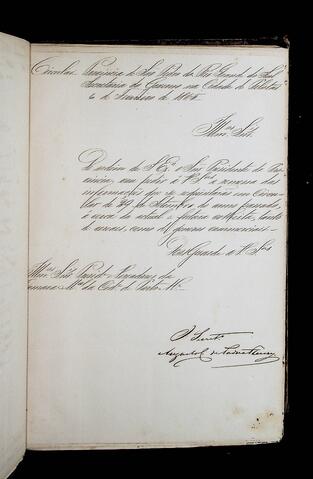 Circular Provincia de São Pedro do Rio Grande do Sul
Secretaria do Governo na Cidade de Pelotas
6 de Fevereiro de
Illmos Snrs.
De ordem de S. Exª o Snr Presidente da Pro-
vincia, vou pedir a VSªs remessa das
informações que se exigirão em Circu-
lar de 29 de Setembro do anno passado,
á cerca da actual e futura colheita, tanto
de cereaes, como de generos
Deos Guarde a V. Sªs
Illmos Snrs Presidte e Vereadores da
Camara Mal da Cide de Porto
O Secretº